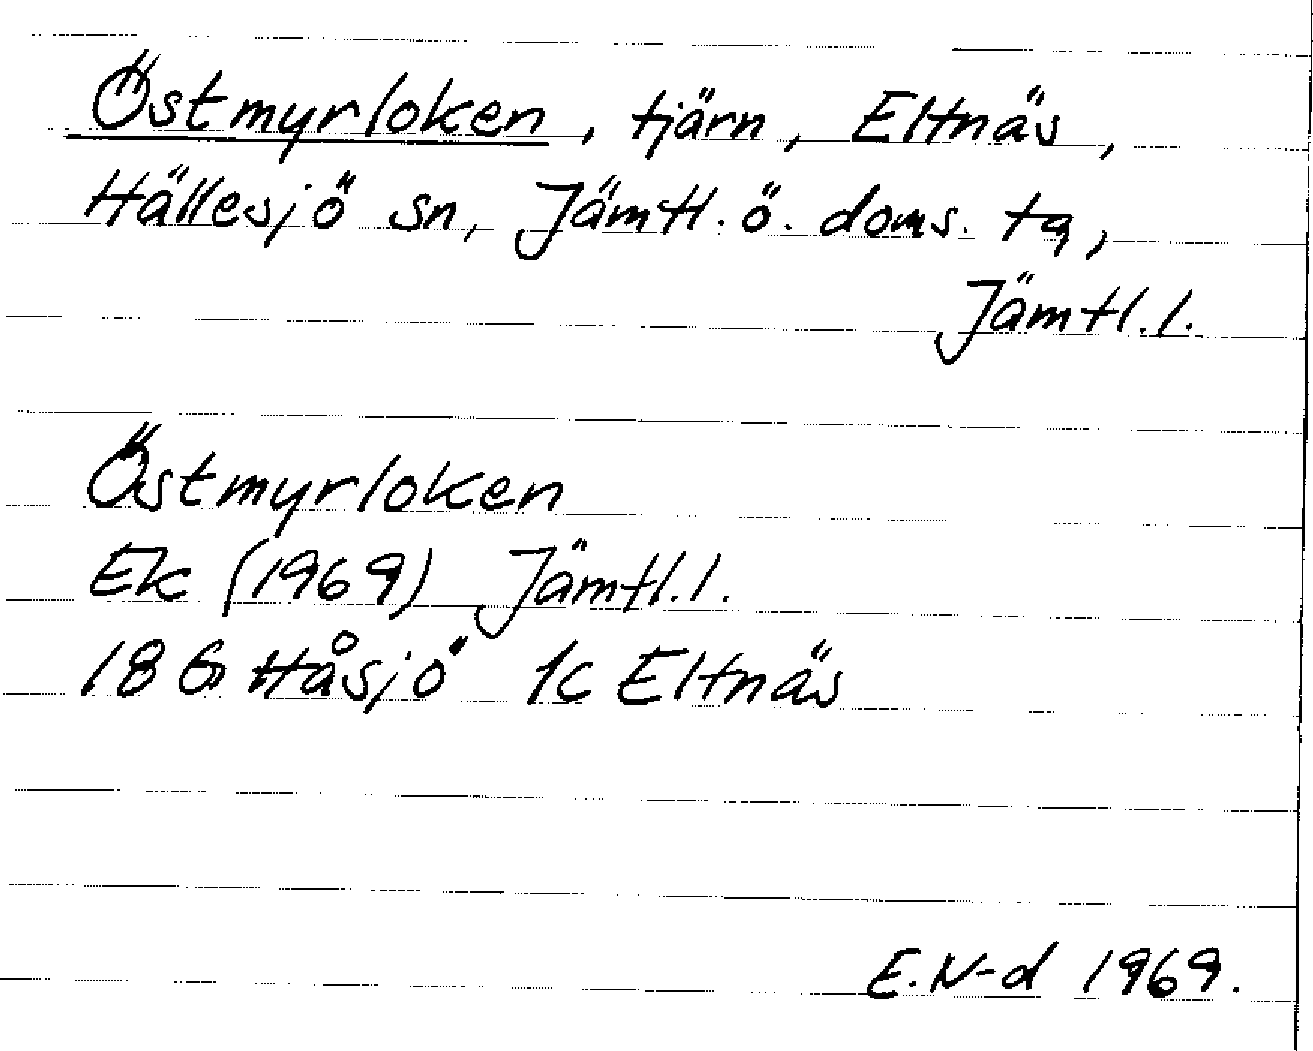 Östmyrloken, tjärn, Eltnäs,
Hällesjö sn, Jämtl. ö. doms. tg,
Jämtl. l.
Östmyrloken
Ek (1969) Jämtl. l.
18 G Håsjö 1c Eltnäs
E. N-d 1969.